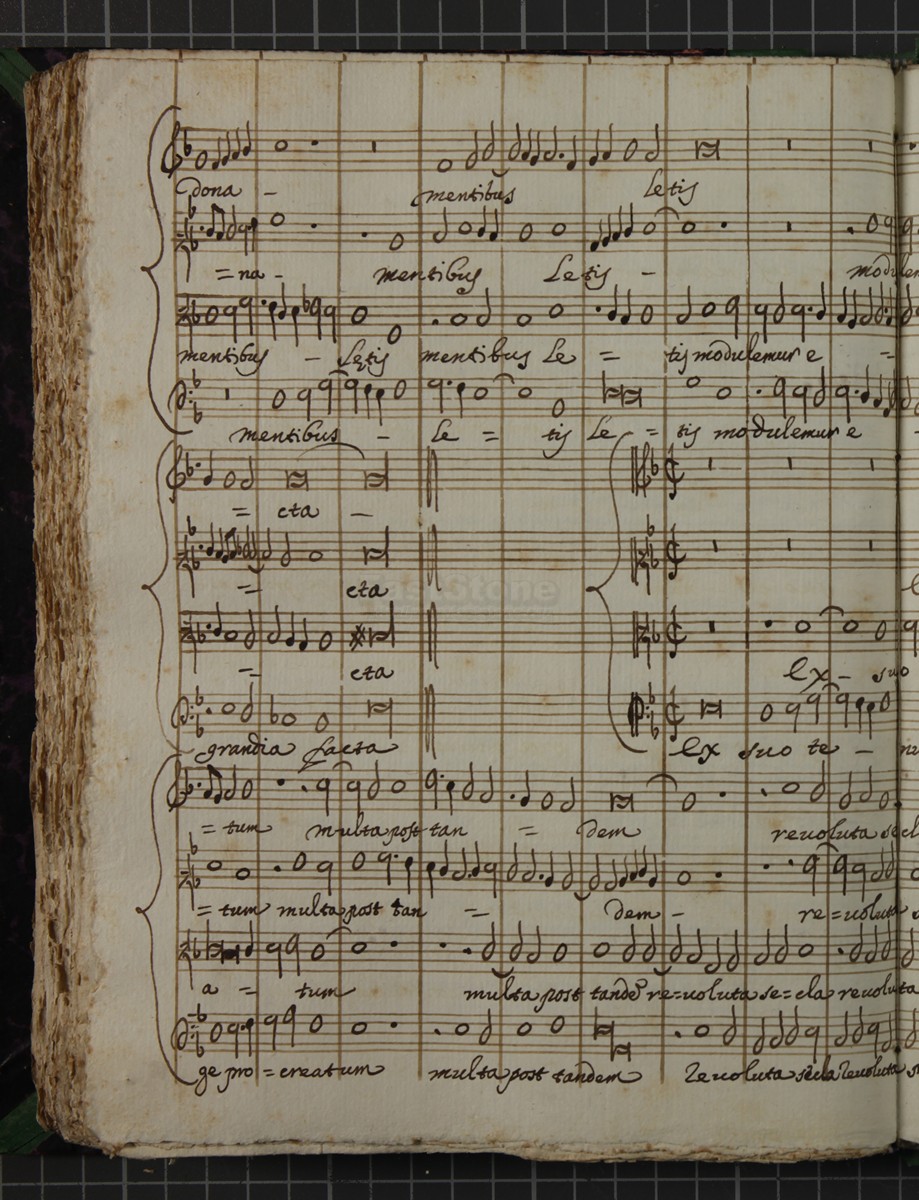 Dona - mentibus Letis
= na - mentibus Letis - modulem
mentibus - Letis mentibus Le = tis modulemur e =
mentibus - Le = tis Le = tis modulemur e -
= eta -
= eta
= eta Ex - suo
grandia facta Ex suo te -
= tum multa post tan = dem reuoluta secl
= tum multa post tan = dem - re=uoluta
a = tum multa post tandē re=uoluta se=cla reuoluta
ge pro=creatum multa post tandem Reuoluta secla Reuoluta